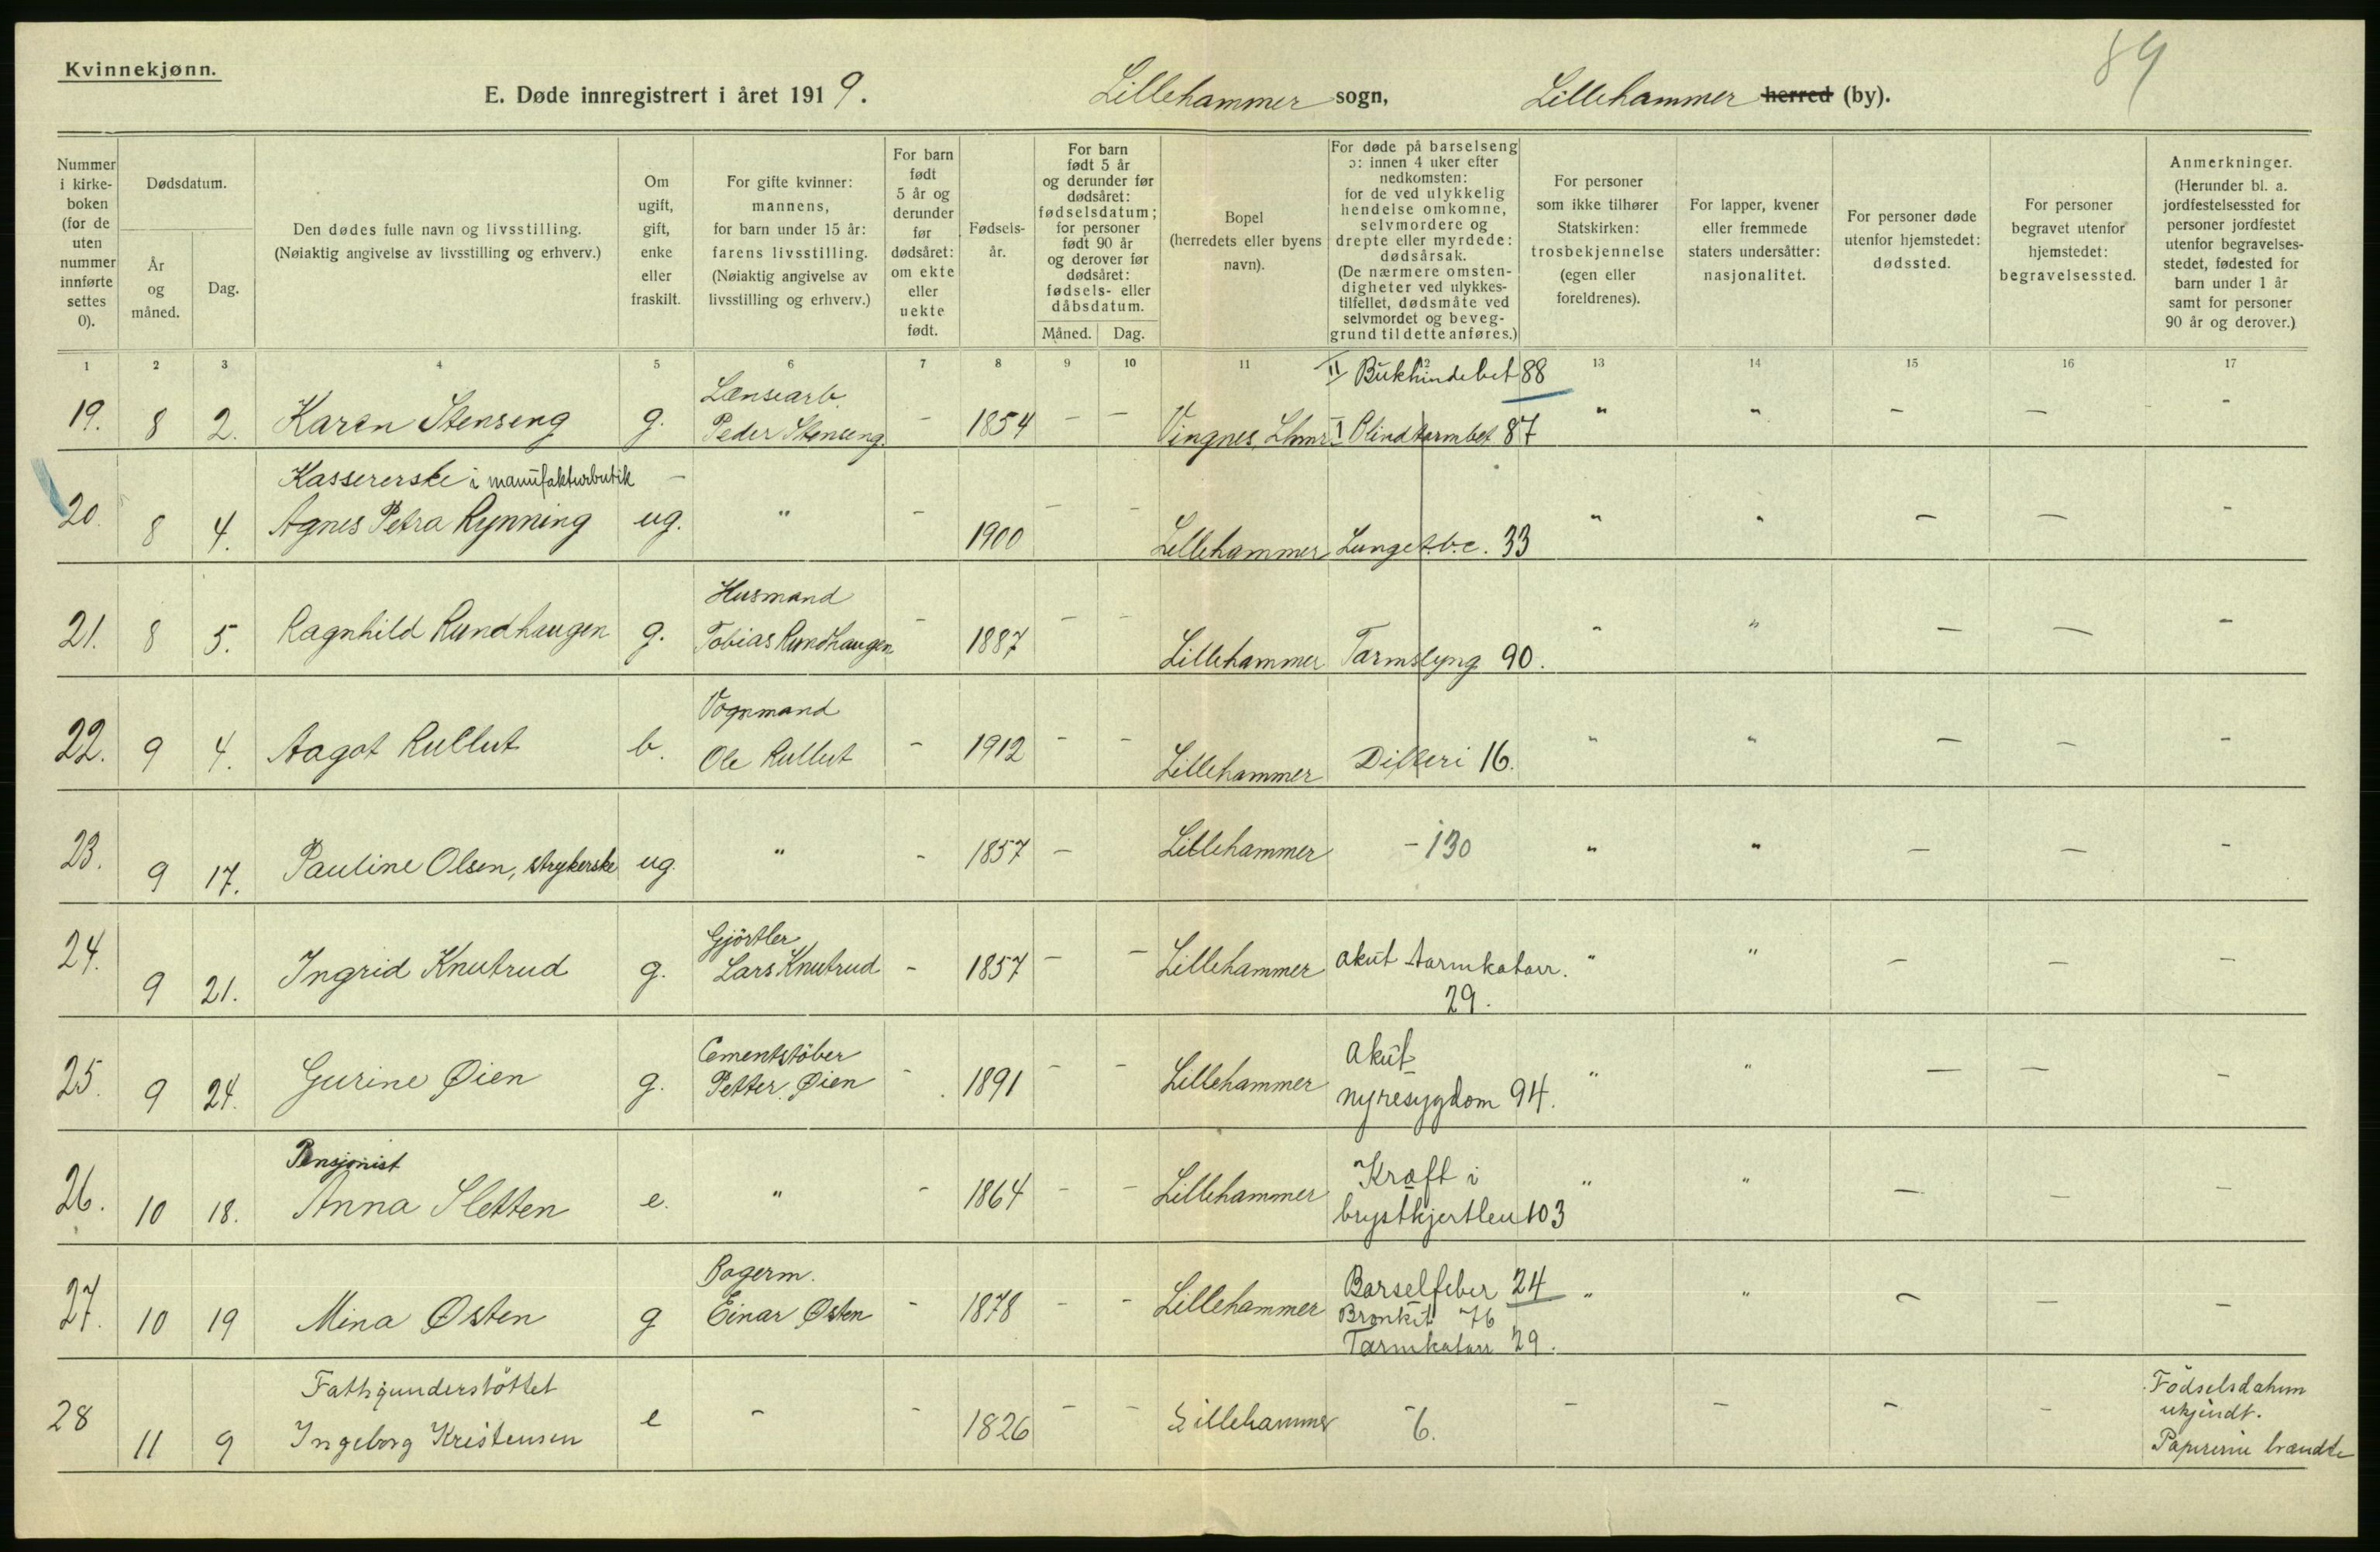 Kvinnekjønn.
89
E. Døde innregistrert i året 1919. Lillehammer sogn, Lillehammer herred (by).
Nummer i kirke-boken (for de uten nummer innførte settes 0).
Dødsdatum.
År og måned.
Dag.
Den dødes fulle navn og livsstilling.
(Nøiaktig angivelse av livsstilling og erhverv.)
Om ugift, gift, enke eller fraskilt.
For gifte kvinner: mannens, for barn under 15 år: farens livsstilling. (Nøiaktig angivelse av livsstilling og erhverv.)
For barn født 5 år og derunder før dødsåret: om ekte eller uekte født.
Fødsels-år.
For barn født 5 år og derunder før dødsåret: fødselsdatum; for personer født 90 år og derover før dødsåret: fødsels- eller dåbsdatum.
Måned.
Dag.
Bopel (herredets eller byens navn).
For døde på barselseng ɔ: innen 4 uker efter nedkomsten: for de ved ulykkelig hendelse omkomne, selvmordere og drepte eller myrdede: dødsårsak. (De nærmere omsten-digheter ved ulykkes-tilfellet, dødsmåte ved selvmordet og beveg-grund til dette anføres.)
For personer som ikke tilhører Statskirken: trosbekjennelse (egen eller foreldrenes).
For lapper, kvener eller fremmede staters undersåtter: nasjonalitet.
For personer døde utenfor hjemstedet: dødssted.
For personer begravet utenfor hjemstedet: begravelsessted.
Anmerkninger.
(Herunder bl. a. jordfestelsessted for personer jordfestet utenfor begravelses-stedet, fødested for barn under 1 år samt for personer 90 år og derover.)
1 2 3 4 5 6 7 8 9 10 11 12 13 14 15 16 17
Lænsearb. II Bukhindebet 88
19. 8 2. Karen Stenseng g. Peder Stenseng. - 1854 - - Vingnes, Lhmr I Blindtarmbet 87 " " - - -
Kassererske i manufakturbutik -
20. 8 4. Agnes Petra Rynning ug. " - 1900 - - Lillehammer Lunget.b.c. 33 " " - - -
Husmand
21. 8 5. Ragnhild Rundhaugen g. Tobias Rundhaugen - 1887 - - Lillehammer Tarmslyng 90. " " - - -
Vognmand
22. 9 4. Aagot Rullut b. Ole Rullut - 1912 - - Lillehammer Difteri 16. " " - - -
23. 9 17. Pauline Olsen, strykerske ug. " - 1857 - Lillehammer - 130 " " - - -
Gjörtler
24. 9 21. Ingrid Knutrud g. Lars Knutrud - 1857 - - Lillehammer akut tarmkatarr. " " - - -
29.
Cementstöber akut
25. 9 24. Gurine Øien g. Petter Øien - 1891 - - Lillehammer nyresygdom 94. " " - - -
Pensjonist Kræft i
26. 10 18. Anna Sletten e. " - 1864 - - Lillehammer brystkjertlen 103 " " - - -
Bagerm. Barselfeber 24
27. 10 19 Mina Østen g Einar Østen - 1878 - - Lillehammer Bronkit 76 " " - - -
Tarmkatarr 29.
Fattigunderstöttet Födselsdatum
28 11 9 Ingeborg Kristensen e - - 1826 - - Lillehammer - 6. - - - - ukjendt.
Papirerne brændte